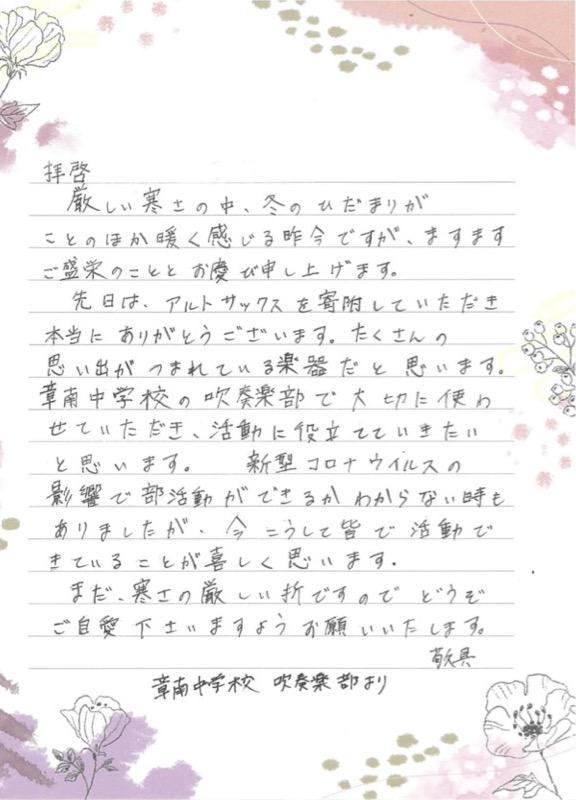 拝啓
厳しい寒さの中、冬のひだまりが
ことのほか暖く感じる昨今ですが、ますます
ご盛栄のこととお慶び申し上げます。
先日は、アルトサックスを寄附していただき
本当にありがとうございます。たくさんの
思い出がつまれている楽器だと思います。
章南中学校の吹奏楽部で大切に使わ
せていただき、活動に役立てていきたい
と思います。 新型コロナウイルスの
影響で部活動ができるかわからない時も
ありましたが、今こうして皆で活動で
きていることが喜しく思います。
まだ、寒さの厳しい折ですのでどうぞ
ご自愛下さいますようお願いいたします。
敬具
章南中学校 吹奏楽部より